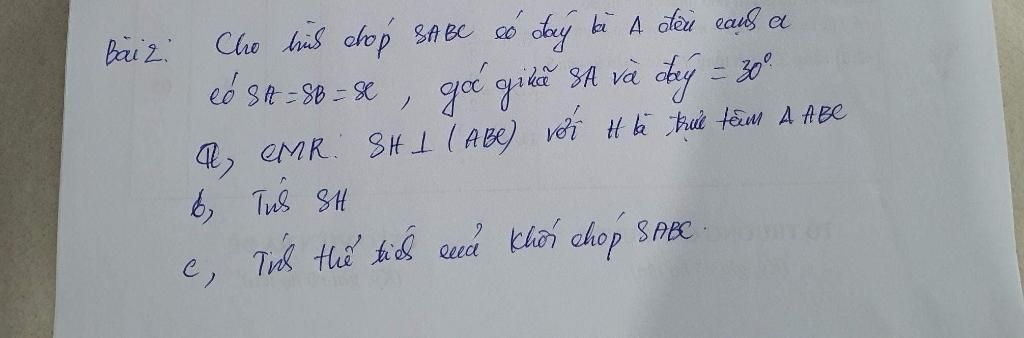 Bài 2: Cho hình chóp SABC có đáy là Δ đều cạnh a
có SA = SB = SC , góc giữa SA và đáy = 30°.
a, CMR: SH ⊥ (ABC) với H là trực tâm Δ ABC
b, Tính SH
c, Tính thể tích của khối chóp SABC.